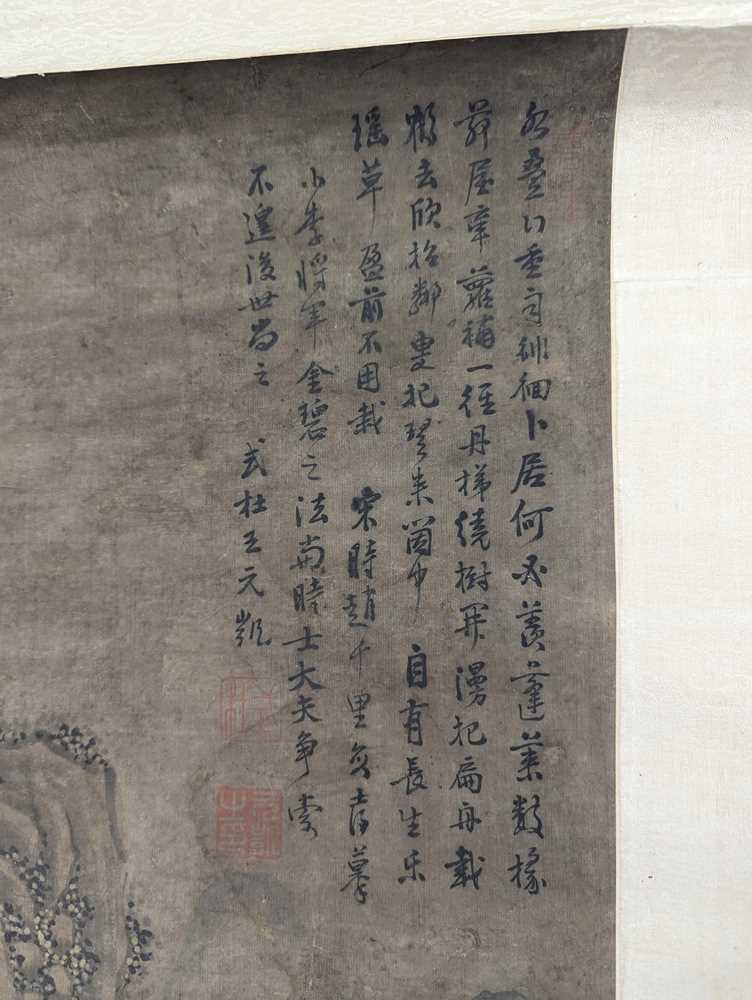 水叠山重自徘徊卜居何必羨蓬萊數椽
茅屋牽蘿補一徑丹梯繞樹開漫把扁舟載
鶴去欣招鄰叟把琴來箇中自有長生樂
瑤草盈前不用栽 宋時趙千里摹
小李將軍金碧之法當時士大夫爭索
不遑後世尚之 式杜王元